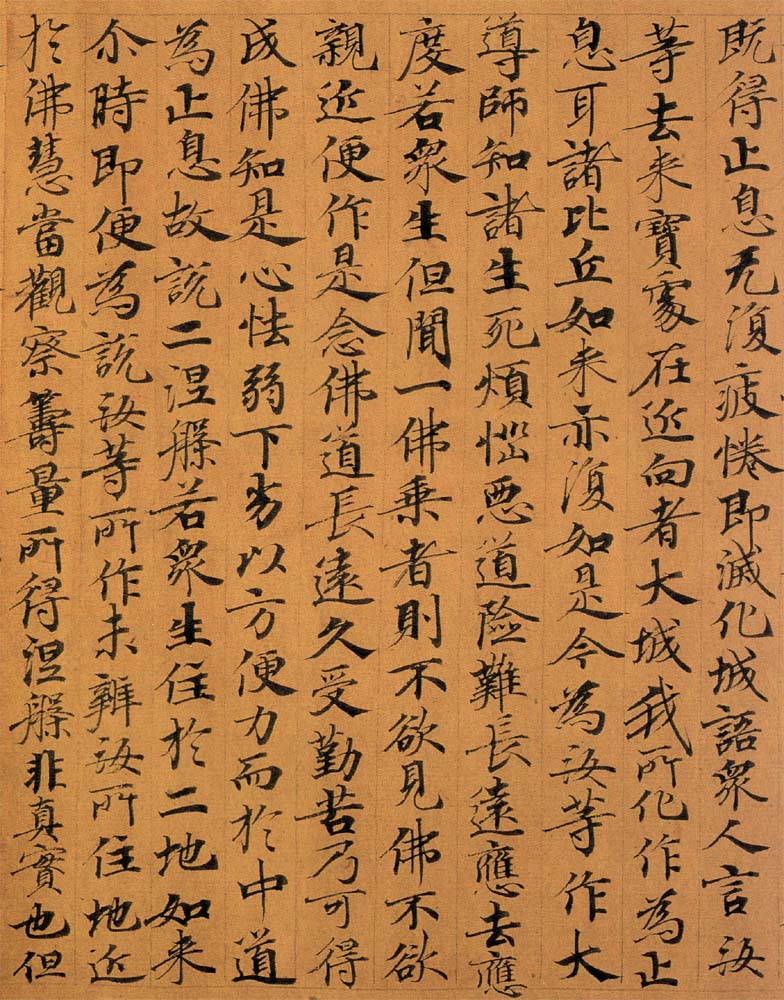 既得止息无復疲惓即滅化城語衆人言汝
等去来寶處在近向者大城我所化作為止
息耳諸比丘如来亦復如是今為汝等作大
導師知諸生死煩惱惡道險難長遠應去應
度若衆生但聞一佛乗者則不欲見佛不欲
親近便作是念佛道長遠久受勤苦乃可得
成佛知是心怯弱下劣以方便力而於中道
為止息故説二涅槃若衆生住於二地如来
尒時即便為説汝等所作未辨汝所住地近
於佛慧當觀察籌量所得涅槃非真實也但